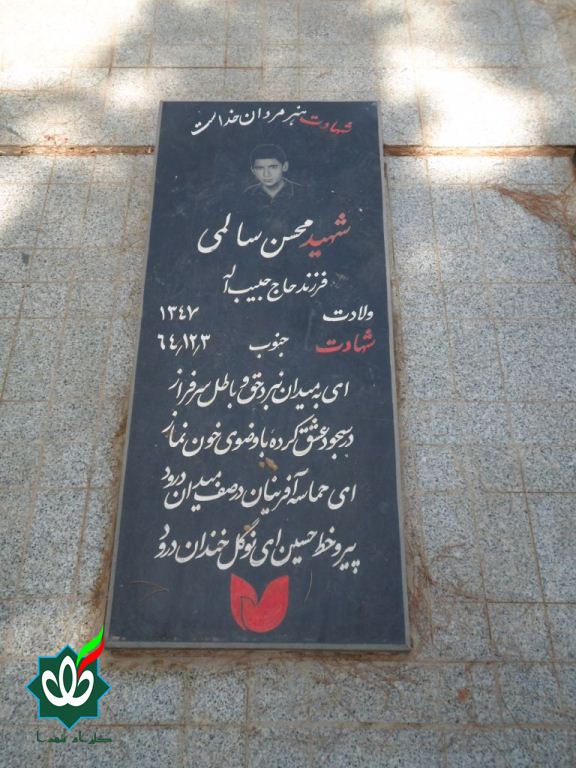 شهادت هنر مردان خداست
شهید محسن سالمی
فرزند حاج حبیب اله
ولادت ۱۳۴۷
شهادت جنوب ۶۴/۱۲/۳
ای به میدان نبرد حق و باطل سرفراز
در سجود عشق کرده با وضوی خون نماز
ای حماسه آفرینان در صف میدان درود
پیرو خط حسین ای نوگل خندان درود
گلزار شهدا